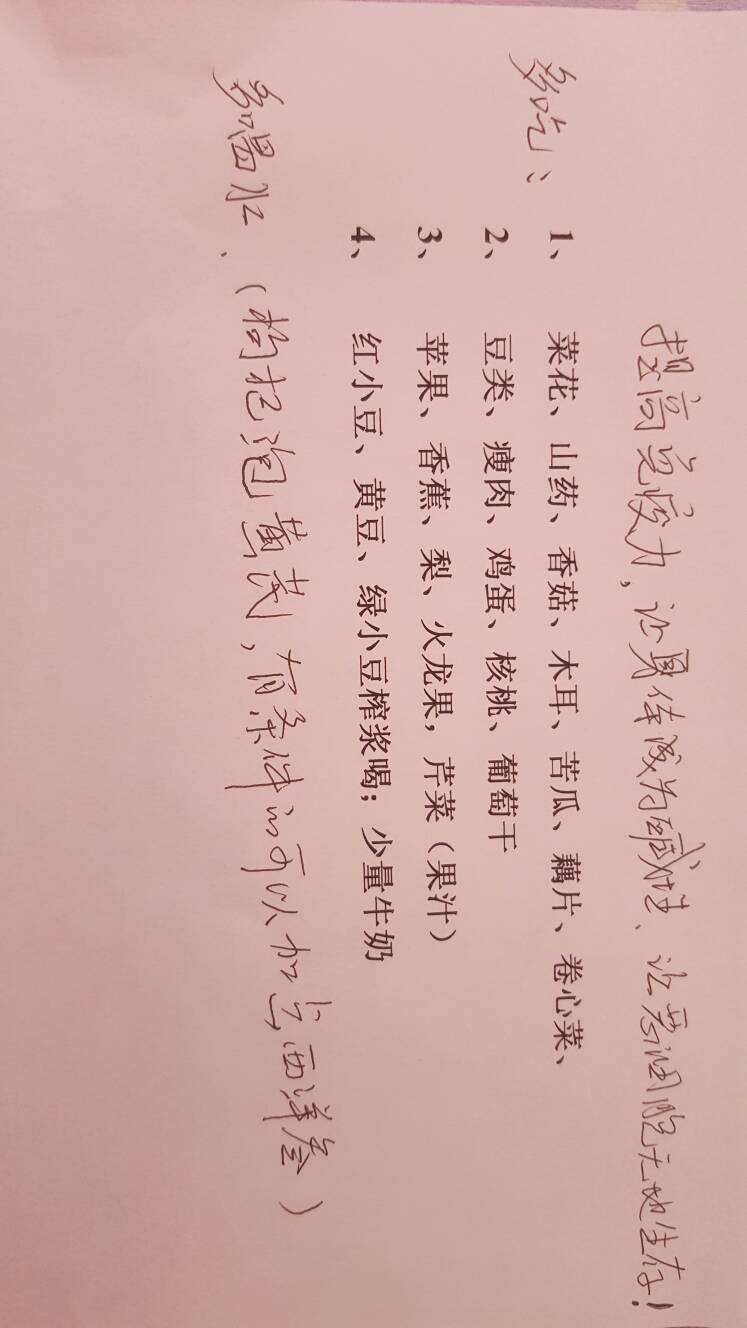 提高免疫力，让身体成为碱性、让恶细胞无地生存！
多吃：
1、 菜花、山药、香菇、木耳、苦瓜、藕片、卷心菜、
2、 豆类、瘦肉、鸡蛋、核桃、葡萄干
3、 苹果、香蕉、梨、火龙果，芹菜（果汁）
4、 红小豆、黄豆、绿小豆榨浆喝；少量牛奶
多喝水、（枸杞泡黄芪，有条件的可以加点西洋参）